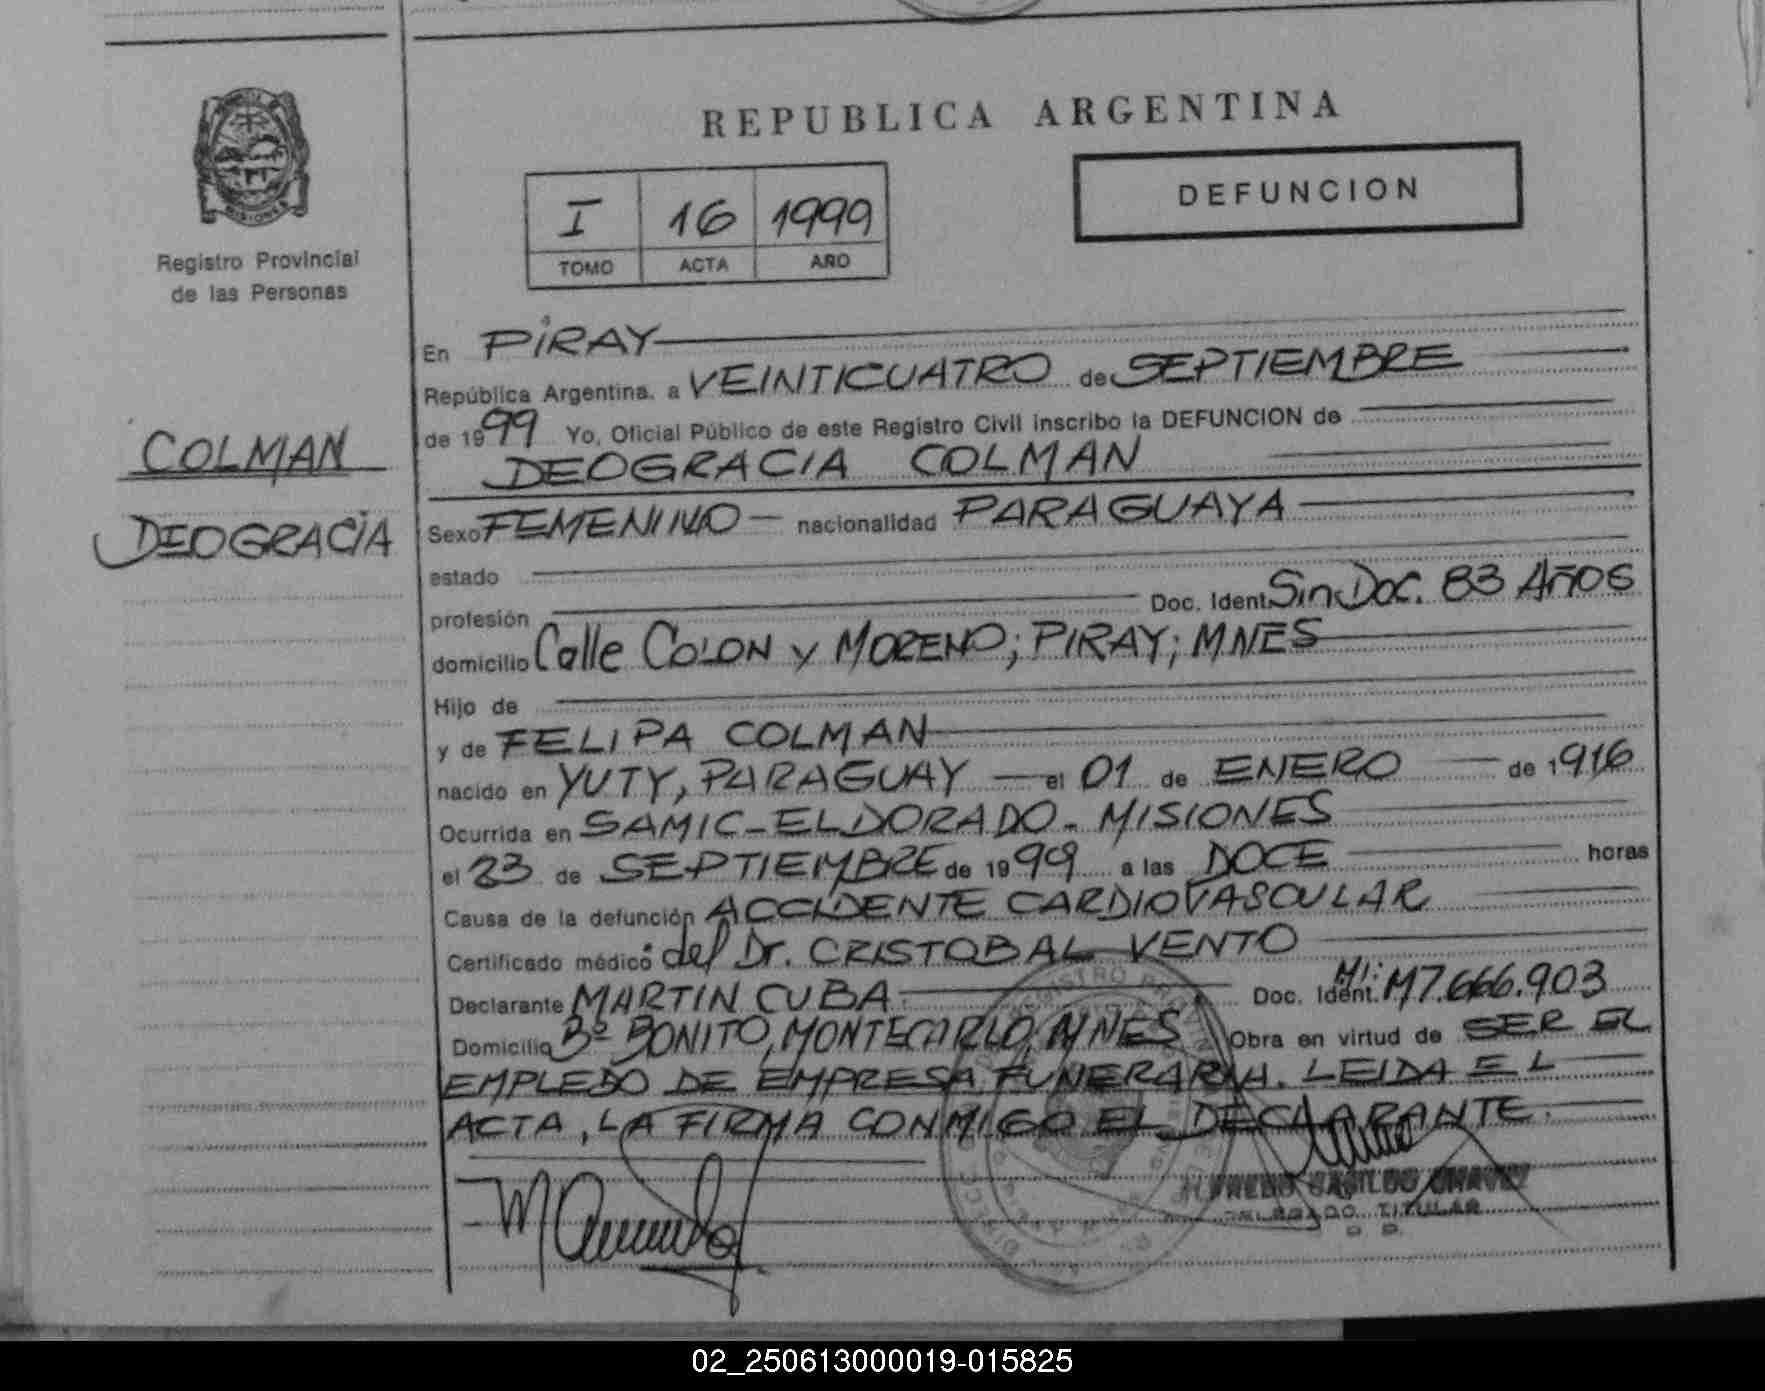 REPUBLICA ARGENTINA
I 16 1999
TOMO ACTA AÑO
DEFUNCION
MISIONES
Registro Provincial
de las Personas
COLMAN
DEOGRACIA
En PIRAY
República Argentina, a VEINTICUATRO de SEPTIEMBRE
de 1999 Yo, Oficial Público de este Registro Civil inscribo la DEFUNCION de
DEOGRACIA COLMAN
Sexo FEMENINO nacionalidad PARAGUAYA
estado
profesión Doc. Ident. Sin Doc. 83 AÑOS
domicilio Calle COLON y MORENO; PIRAY; MNES
Hijo de
y de FELIPA COLMAN
nacido en YUTY, PARAGUAY el 01 de ENERO de 1916
Ocurrida en SAMIC-ELDORADO-MISIONES
el 23 de SEPTIEMBRE de 1999 a las DOCE horas
Causa de la defunción ACCIDENTE CARDIOVASCULAR
Certificado médico: del Dr. CRISTOBAL VENTO
Declarante MARTIN CUBA Doc. Ident. MI: M7.666.903
Domicilio Bº BONITO, MONTECARLO, MNES Obra en virtud de SER EL
EMPLEDO DE EMPRESA FUNERARIA. LEIDA EL
ACTA, LA FIRMA CONMIGO EL DECLARANTE.
DELEGADO TITULAR
02_250613000019-015825